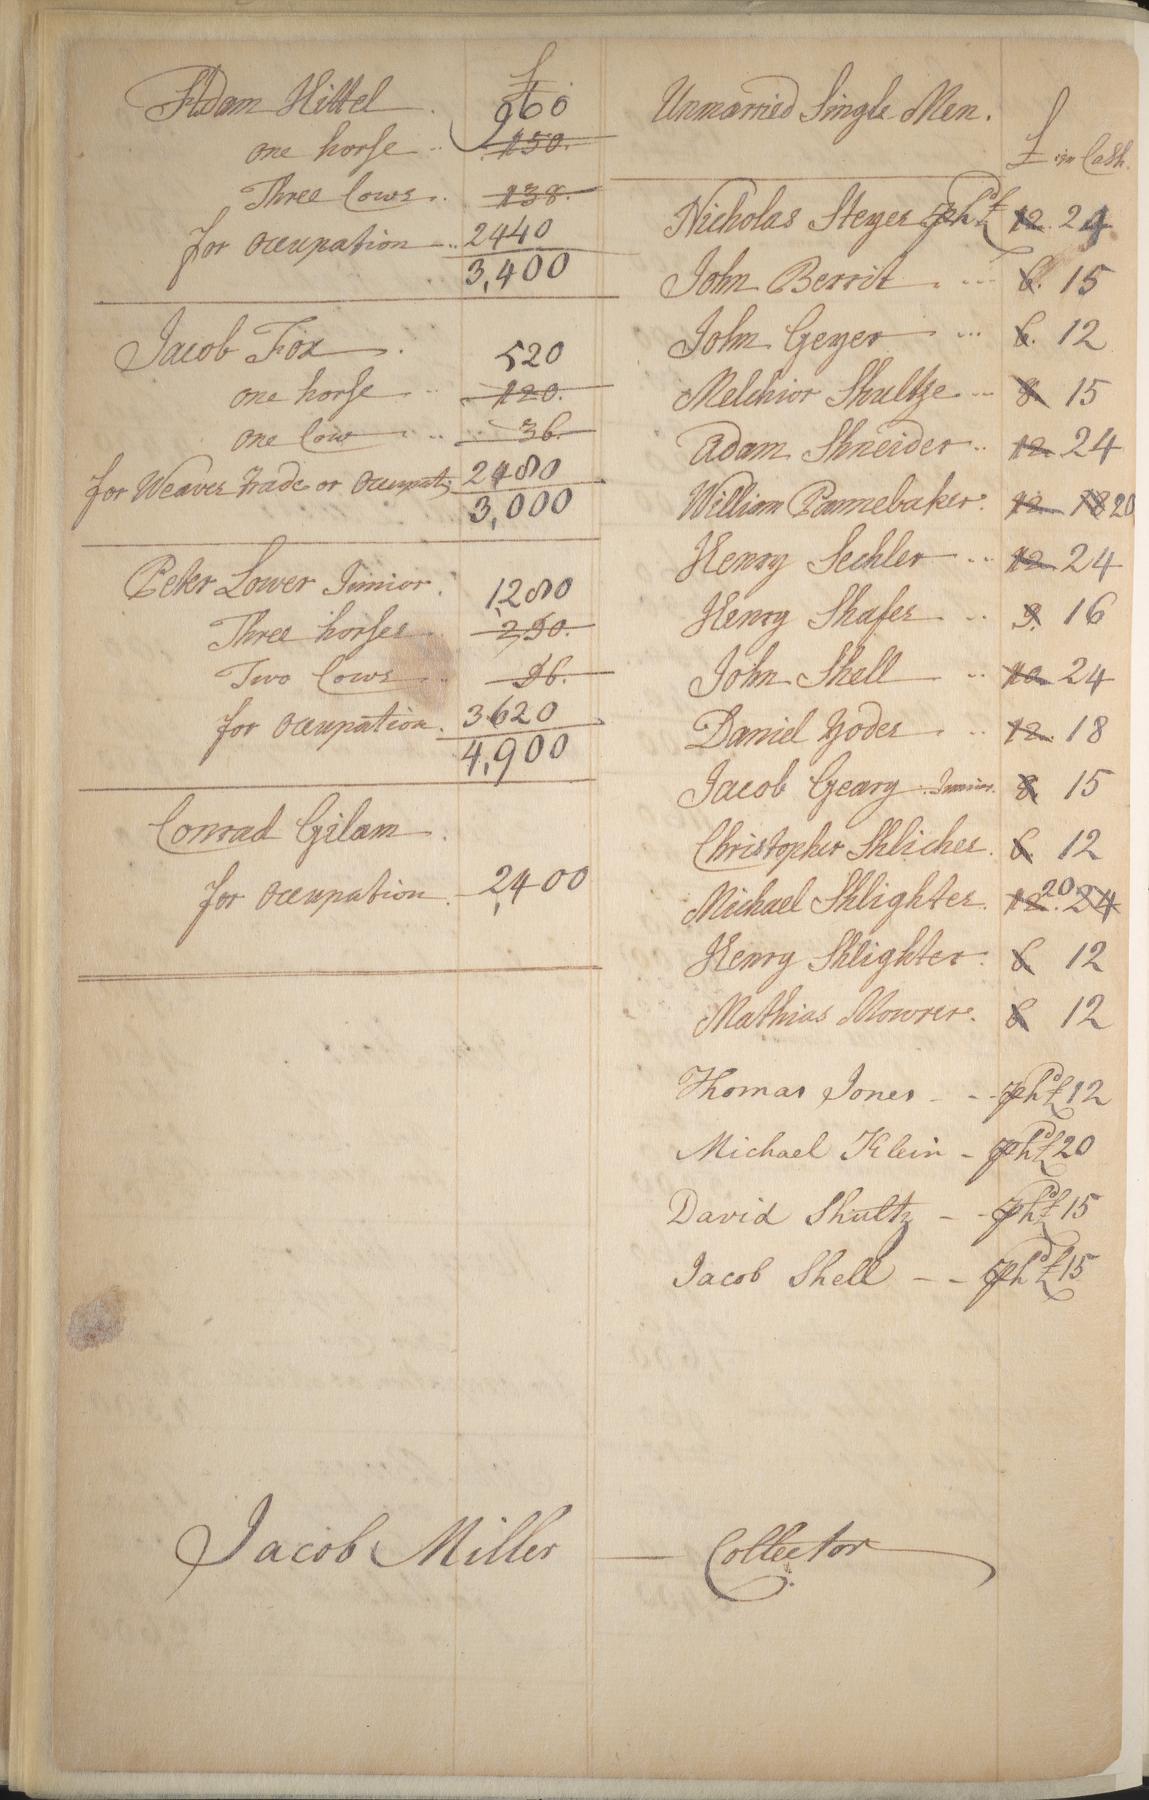 £
Adam Hittel . 960
one horse .. 150.
Three Cows .. 138.
for occupation .. 2440
3,400
Jacob Fox . 520
one horse .. 120.
one Cow .. 36.
for Weaver Trade or Occupat: 2480
3,000
Peter Lower Junior . 1,280
Three horses . 250.
Two Cows .. 96.
for occupation . 3620
4,900
Conrad Gilam .
for occupation . 2,400
Unmarried Single Men.
£ in Cash.
Nicholas Steyer 12. 24
John Berrit . ... 6. 15
John Geyer ... 6. 12
Melchior Shultze ... 8. 15
Adam Shneider .. 12. 24
William Pannebaker . 12. 18 20
Henry Sechler .. 12. 24
Henry Shafer .. 9. 16
John Shell .. 12. 24
Daniel Yoder . .. 12. 18
Jacob Geary Junior. 8. 15
Christopher Shlicher . 6 12
Michael Shlighter . 12. 20 24
Henry Shlighter . 6 12
Mathias Mowrer . 6 12
Thomas Jones - - £12
Michael Klein - £20
David Shultz - - £15
Jacob Shell - - £15
Jacob Miller — Collector